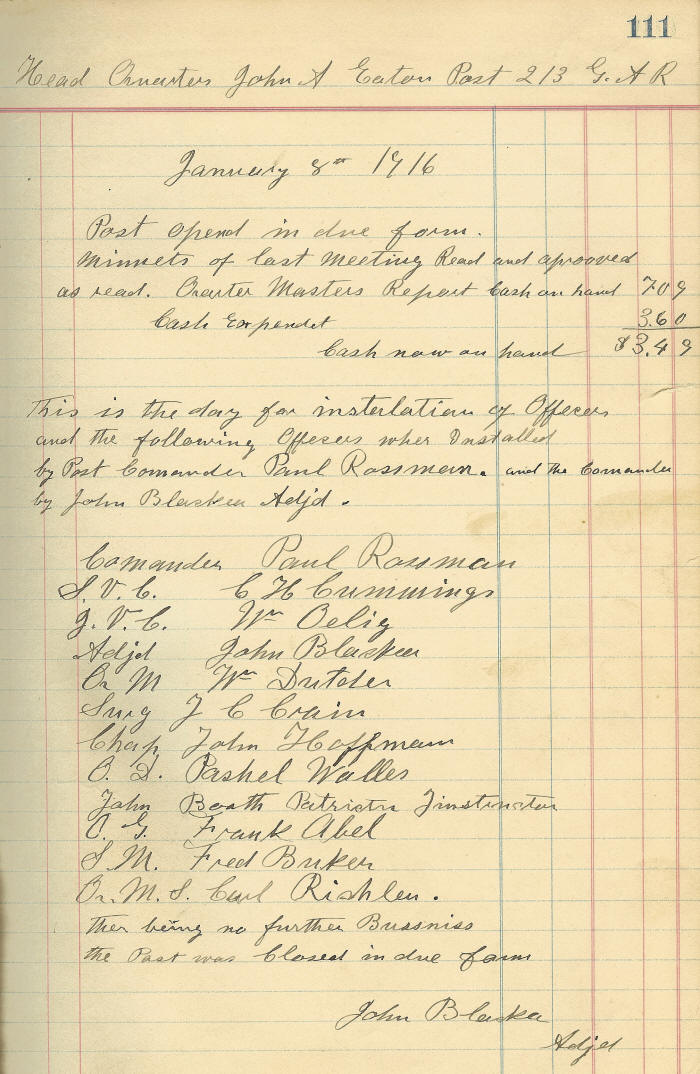 111
Head Quarters John A Eaton Post 213 G. A R
January 8th 1916
Post opend in due form.
Minnets of last Meeting Read and aprooved
as read. Quarter Masters Report Cash on hand 7.09
Cash Expendet 3.60
Cash now on hand $3.49
This is the day for insterlation of Offecers
and the following Offecers wher Installed
by Post Comander Paul Rossman. and the Comander
by John Blaskea Adjd.
Comander Paul Rossman
S. V. C. C H Cummings
J. V. C. Wm Oelig
Adjd John Blaskea
Qr M Wm Dutcher
Surg J C Crain
Chap John Hoffmann
O. D. Pashel Walles
John Booth Patriotn Jinstructor
O. G. Frank Abel
S. M. Fred Buker
Qr. M. S. Carl Rishlen.
ther being no further Bussniss
the Post was Closed in due form
John Blaska
Adjd